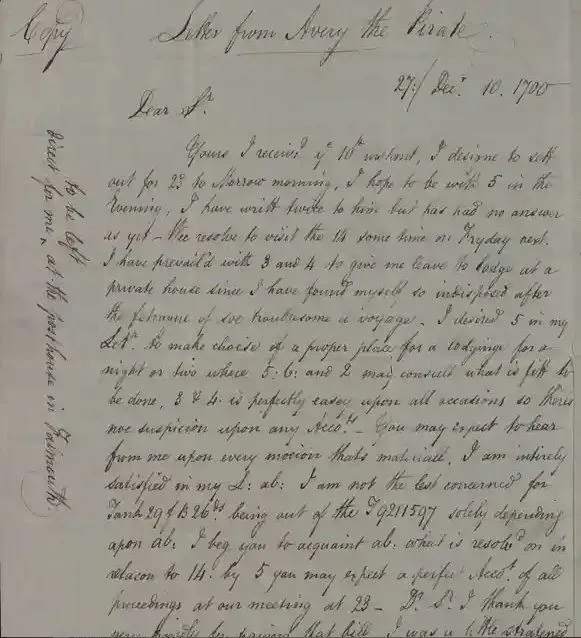 Copy
Letter from Avery the Pirate.
27:/ Decr. 10. 1700
Dear Sr.
Yours I received ye 10th instant, I designe to sett
out for 23 to Morrow morning, I hope to be with 5 in the
Evening, I have writt twice to him but has had no answer
as yet – Wee resolve to visit the 14 some time on Fryday next.
I have prevail'd with 3 and 4 to give me leave to lodge at a
private house since I have found myself so indisposed after
the fatigue of soe troublesome a voyage. I desired 5 in my
Letr. to make choise of a proper place for a lodginge for a
night or two where 5: 6: and 2 may consult what is fitt to
be done, 3 & 4 is perfectly easey upon all occasions so theres
noe suspicion upon any Acco:ts – You may expect to hear
from me upon every mocion thats materiall. I am intirely
satisfied in my L: ab: I am not the lest concerned for
Tank 29 f B26 being out of the T9211597 solely depending
upon ab: I beg you to acquaint ab: what is resolvd on in
relacon to 14. by 5 you may expect a perfect Acct. of all
proceedings at our meeting at 23 – Dr. Sr. I thank you
that bill I was a little
to be left
direct for me ^ at the posthouse in Falmouth.